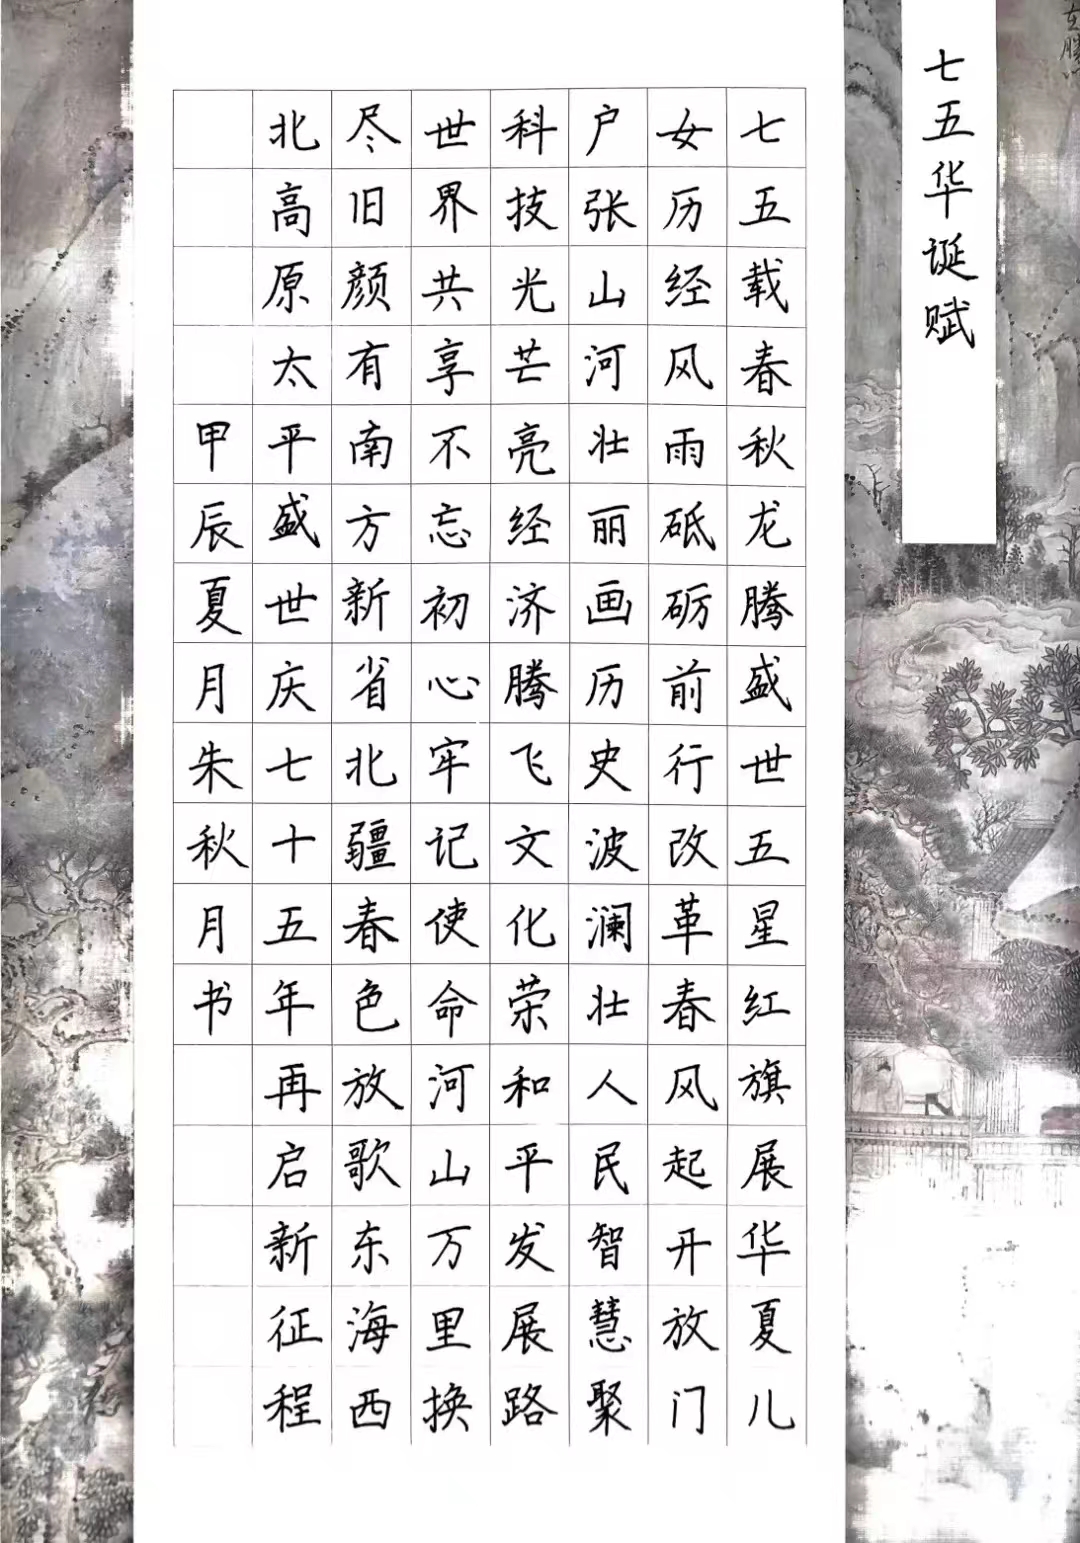 七五华诞赋
七五载春秋龙腾盛世五星红旗展华夏儿
女历经风雨砥砺前行改革春风起开放门
户张山河壮丽画历史波澜壮人民智慧聚
科技光芒亮经济腾飞文化荣和平发展路
世界共享不忘初心牢记使命河山万里换
尽旧颜有南方新省北疆春色放歌东海西
北高原太平盛世庆七十五年再启新征程
甲辰夏月朱秋月书